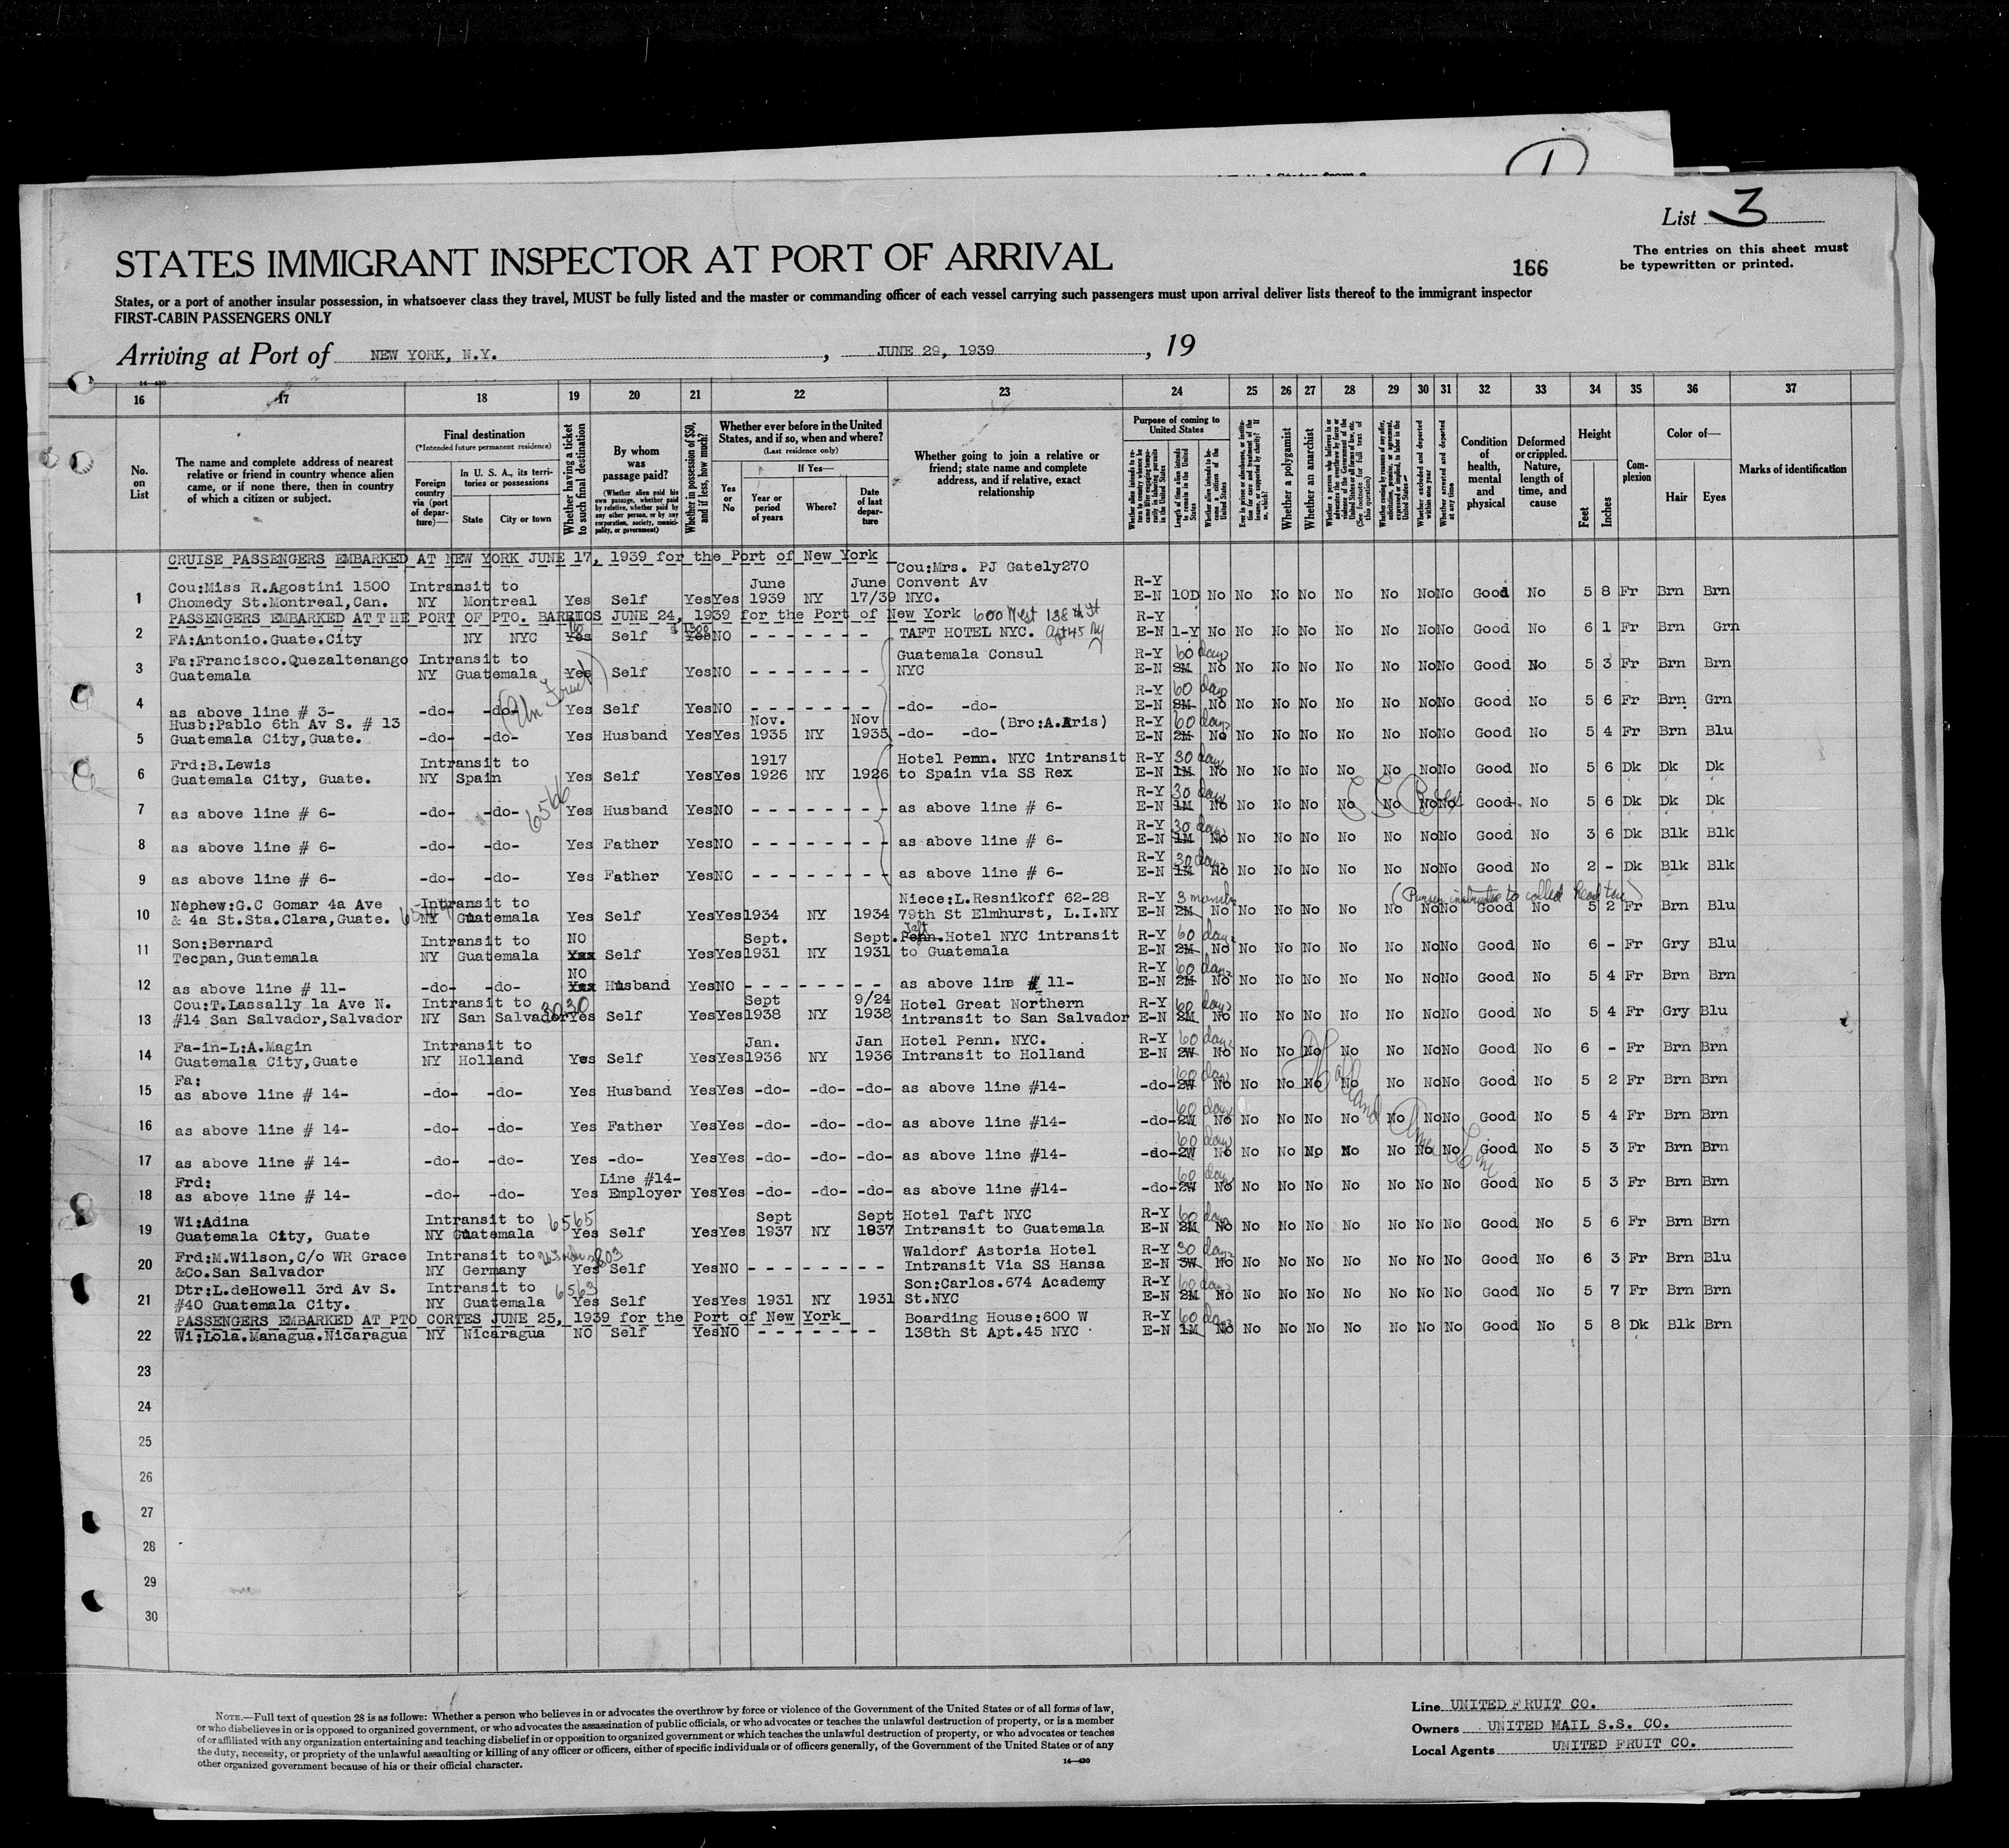 List 3
STATES IMMIGRANT INSPECTOR AT PORT OF ARRIVAL
166
The entries on this sheet must
be typewritten or printed.
States, or a port of another insular possession, in whatsoever class they travel, MUST be fully listed and the master or commanding officer of each vessel carrying such passengers must upon arrival deliver lists thereof to the immigrant inspector
FIRST-CABIN PASSENGERS ONLY
Arriving at Port of NEW YORK, N.Y. , JUNE 29, 1939 , 19
14-430
16 17 18 19 20 21 22 23 24 25 26 27 28 29 30 31 32 33 34 35 36 37
No. on List
The name and complete address of nearest relative or friend in country whence alien came, or if none there, then in country of which a citizen or subject.
Final destination
(*Intended future permanent residence)
Foreign country via (port of departure)—
In U. S. A., its territories or possessions
State
City or town
Whether having a ticket to such final destination
By whom was passage paid?
(Whether alien paid his own passage, whether paid by relative, whether paid by any other person, or by any corporation, society, municipality, or government)
Whether in possession of $50, and if less, how much?
Whether ever before in the United States, and if so, when and where?
(Last residence only)
Yes or No
If Yes—
Year or period of years
Where?
Date of last departure
Whether going to join a relative or friend; state name and complete address, and if relative, exact relationship
Purpose of coming to United States
Length of time alien intends to remain in the United States
Whether a polygamist
Whether an anarchist
Whether excluded and deported within one year
Whether arrested and deported at any time
Condition of health, mental and physical
Deformed or crippled. Nature, length of time, and cause
Height
Feet
Inches
Complexion
Color of—
Hair
Eyes
Marks of identification
CRUISE PASSENGERS EMBARKED AT NEW YORK JUNE 17, 1939 for the Port of New York
1 Cou:Miss R.Agostini 1500 Chomedy St.Montreal,Can. Intransit to NY Montreal Yes Self Yes Yes June 1939 NY June 17/39 Cou:Mrs. PJ Gately270 Convent Av NYC. R-Y E-N 10D No No No No No No No No Good No 5 8 Fr Brn Brn
PASSENGERS EMBARKED AT THE PORT OF PTO. BARRIOS JUNE 24, 1939 for the Port of New York 600 West 138th St
2 FA:Antonio.Guate.City NY NYC Yes No Self Yes NO - - - - - - - TAFT HOTEL NYC. Apt 45 Ny R-Y E-N 1-Y No No No No No No No No Good No 6 1 Fr Brn Grn
3 Fa:Francisco.Quezaltenango Guatemala Intransit to NY Guatemala Yes Self Yes NO - - - - - - - Guatemala Consul NYC R-Y E-N 2M 60 days No No No No No No No No Good No 5 3 Fr Brn Brn
4 as above line # 3- -do- -do- Yes Self Yes NO - - - - - - - -do- -do- R-Y E-N 2M 60 days No No No No No No No No Good No 5 6 Fr Brn Grn
5 Husb:Pablo 6th Av S. # 13 Guatemala City,Guate. -do- -do- Yes Husband Yes Yes Nov. 1935 NY Nov 1935 -do- -do- (Bro:A.Aris) R-Y E-N 2M 60 days No No No No No No No No Good No 5 4 Fr Brn Blu
6 Frd:B.Lewis Guatemala City, Guate. Intransit to NY Spain Yes Self Yes Yes 1917 1926 NY 1926 Hotel Penn. NYC intransit to Spain via SS Rex R-Y E-N 1M 30 days No No No No No No No No Good No 5 6 Dk Dk Dk
6566
7 as above line # 6- -do- -do- Yes Husband Yes NO - - - - - - - as above line # 6- R-Y E-N 1M 30 days No No No No No No No No Good No 5 6 Dk Dk Dk
8 as above line # 6- -do- -do- Yes Father Yes NO - - - - - - - as above line # 6- R-Y E-N 1M 30 days No No No No No No No No Good No 3 6 Dk Blk Blk
9 as above line # 6- -do- -do- Yes Father Yes NO - - - - - - - as above line # 6- R-Y E-N 1M 30 days No No No No No No No No Good No 2 - Dk Blk Blk
10 Nephew:G.C Gomar 4a Ave & 4a St.Sta.Clara,Guate. Intransit to NY Guatemala Yes Self Yes Yes 1934 NY 1934 Niece:L.Resnikoff 62-28 79th St Elmhurst, L.I.NY R-Y E-N 2M 3 months No No No No No No No No Good No 5 2 Fr Brn Blu
11 Son:Bernard Tecpan,Guatemala Intransit to NY Guatemala NO Yes Self Yes Yes Sept. 1931 NY Sept. 1931 Penn. Taft Hotel NYC intransit to Guatemala R-Y E-N 2M 60 days No No No No No No No No Good No 6 - Fr Gry Blu
12 as above line # 11- -do- -do- NO Yes Husband Yes NO - - - - - - - as above line # 11- R-Y E-N 2M 60 days No No No No No No No No Good No 5 4 Fr Brn Brn
13 Cou:T.Lassally 1a Ave N. #14 San Salvador,Salvador Intransit to NY San Salvador 3030 Yes Self Yes Yes Sept 1938 NY 9/24 1938 Hotel Great Northern intransit to San Salvador R-Y E-N 2M 60 days No No No No No No No No Good No 5 4 Fr Gry Blu
14 Fa-in-L:A.Magin Guatemala City,Guate Intransit to NY Holland Yes Self Yes Yes Jan. 1936 NY Jan 1936 Hotel Penn. NYC. Intransit to Holland R-Y E-N 2W 60 days No No No No No No No No Good No 6 - Fr Brn Brn
Holland Ame Line
15 Fa: as above line # 14- -do- -do- Yes Husband Yes Yes -do- -do- -do- as above line #14- -do- 2W 60 days No No No No No No No No Good No 5 2 Fr Brn Brn
16 as above line # 14- -do- -do- Yes Father Yes Yes -do- -do- -do- as above line #14- -do- 2W 60 days No No No No No No No No Good No 5 4 Fr Brn Brn
17 as above line # 14- -do- -do- Yes -do- Yes Yes -do- -do- -do- as above line #14- -do- 2W 60 days No No No No No No No No Good No 5 3 Fr Brn Brn
18 Frd: as above line # 14- -do- -do- Yes Line #14- Employer Yes Yes -do- -do- -do- as above line #14- -do- 2W 60 days No No No No No No No No Good No 5 3 Fr Brn Brn
19 Wi:Adina Guatemala City, Guate Intransit to NY Guatemala 6565 Yes Self Yes Yes Sept 1937 NY Sept 1937 Hotel Taft NYC Intransit to Guatemala R-Y E-N 2M 60 days No No No No No No No No Good No 5 6 Fr Brn Brn
20 Frd:M.Wilson,C/o WR Grace &Co.San Salvador Intransit to NY Germany Yes Self Yes NO - - - - - - - Waldorf Astoria Hotel Intransit Via SS Hansa R-Y E-N 3W 30 days No No No No No No No No Good No 6 3 Fr Brn Blu
21 Dtr:L.deHowell 3rd Av S. #40 Guatemala City. Intransit to NY Guatemala 6563 Yes Self Yes Yes 1931 NY 1931 Son:Carlos.674 Academy St.NYC R-Y E-N 2M 60 days No No No No No No No No Good No 5 7 Fr Brn Brn
PASSENGERS EMBARKED AT PTO CORTES JUNE 25, 1939 for the Port of New York
22 Wi:Lola.Managua.Nicaragua NY Nicaragua NO Self Yes NO - - - - - - - Boarding House:600 W 138th St Apt.45 NYC R-Y E-N 1M 60 days No No No No No No No No Good No 5 8 Dk Blk Brn
23
24
25
26
27
28
29
30
NOTE.—Full text of question 28 is as follows: Whether a person who believes in or advocates the overthrow by force or violence of the Government of the United States or of all forms of law,
or who disbelieves in or is opposed to organized government, or who advocates the assassination of public officials, or who advocates or teaches the unlawful destruction of property, or is a member
of or affiliated with any organization entertaining and teaching disbelief in or opposition to organized government or which teaches the unlawful destruction of property, or who advocates or teaches
the duty, necessity, or propriety of the unlawful assaulting or killing of any officer or officers, either of specific individuals or of officers generally, of the Government of the United States or of any
other organized government because of his or their official character.
14-430
Line UNITED FRUIT CO.
Owners UNITED MAIL S.S. CO.
Local Agents UNITED FRUIT CO.